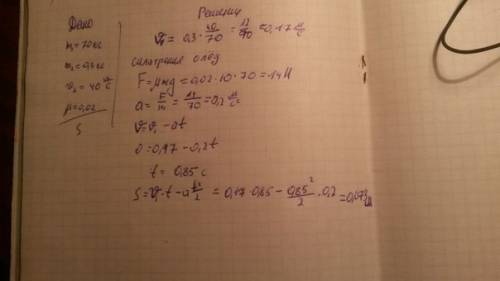 Дано
m₁=70кг
m₂=0,3кг
v₂=40 м/с
μ=0,02
S
Решение
v₁=0,3·40/70=12/70=0,17 м/с
F=μmg=0,02·10·70=14Н
a=F/m=14/70=0,2 м/с²
v=v₁-at
0=0,17-0,2t
t=0,85с
S=v₁·t-at²/2=0,17·0,85-0,85²/2·0,2=0,072м